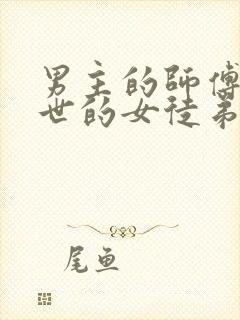 男主的師傅
世的女徒弟
尾鱼